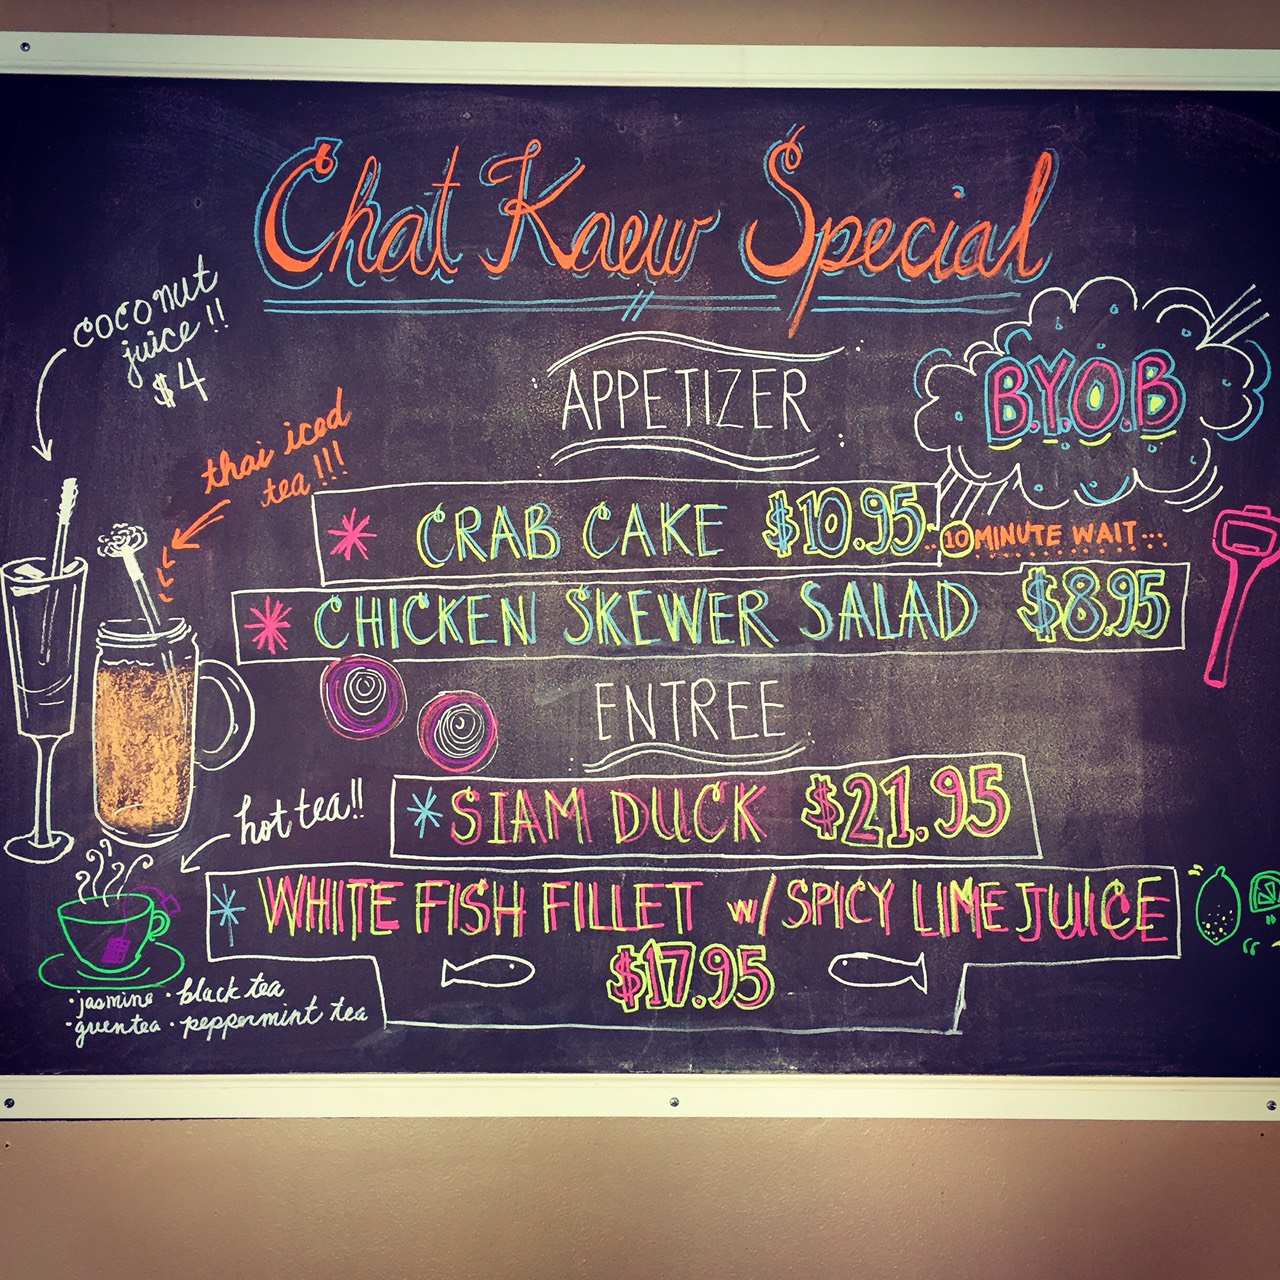 Chat Kaew Special
coconut
juice!!
$4
thai iced
tea!!!
APPETIZER
B.Y.O.B
CRAB CAKE $10.95
10 MINUTE WAIT...
CHICKEN SKEWER SALAD $8.95
ENTREE
SIAM DUCK $21.95
hot tea!!
WHITE FISH FILLET w/ SPICY LIME JUICE
$17.95
· jasmine · black tea
· green tea · peppermint tea